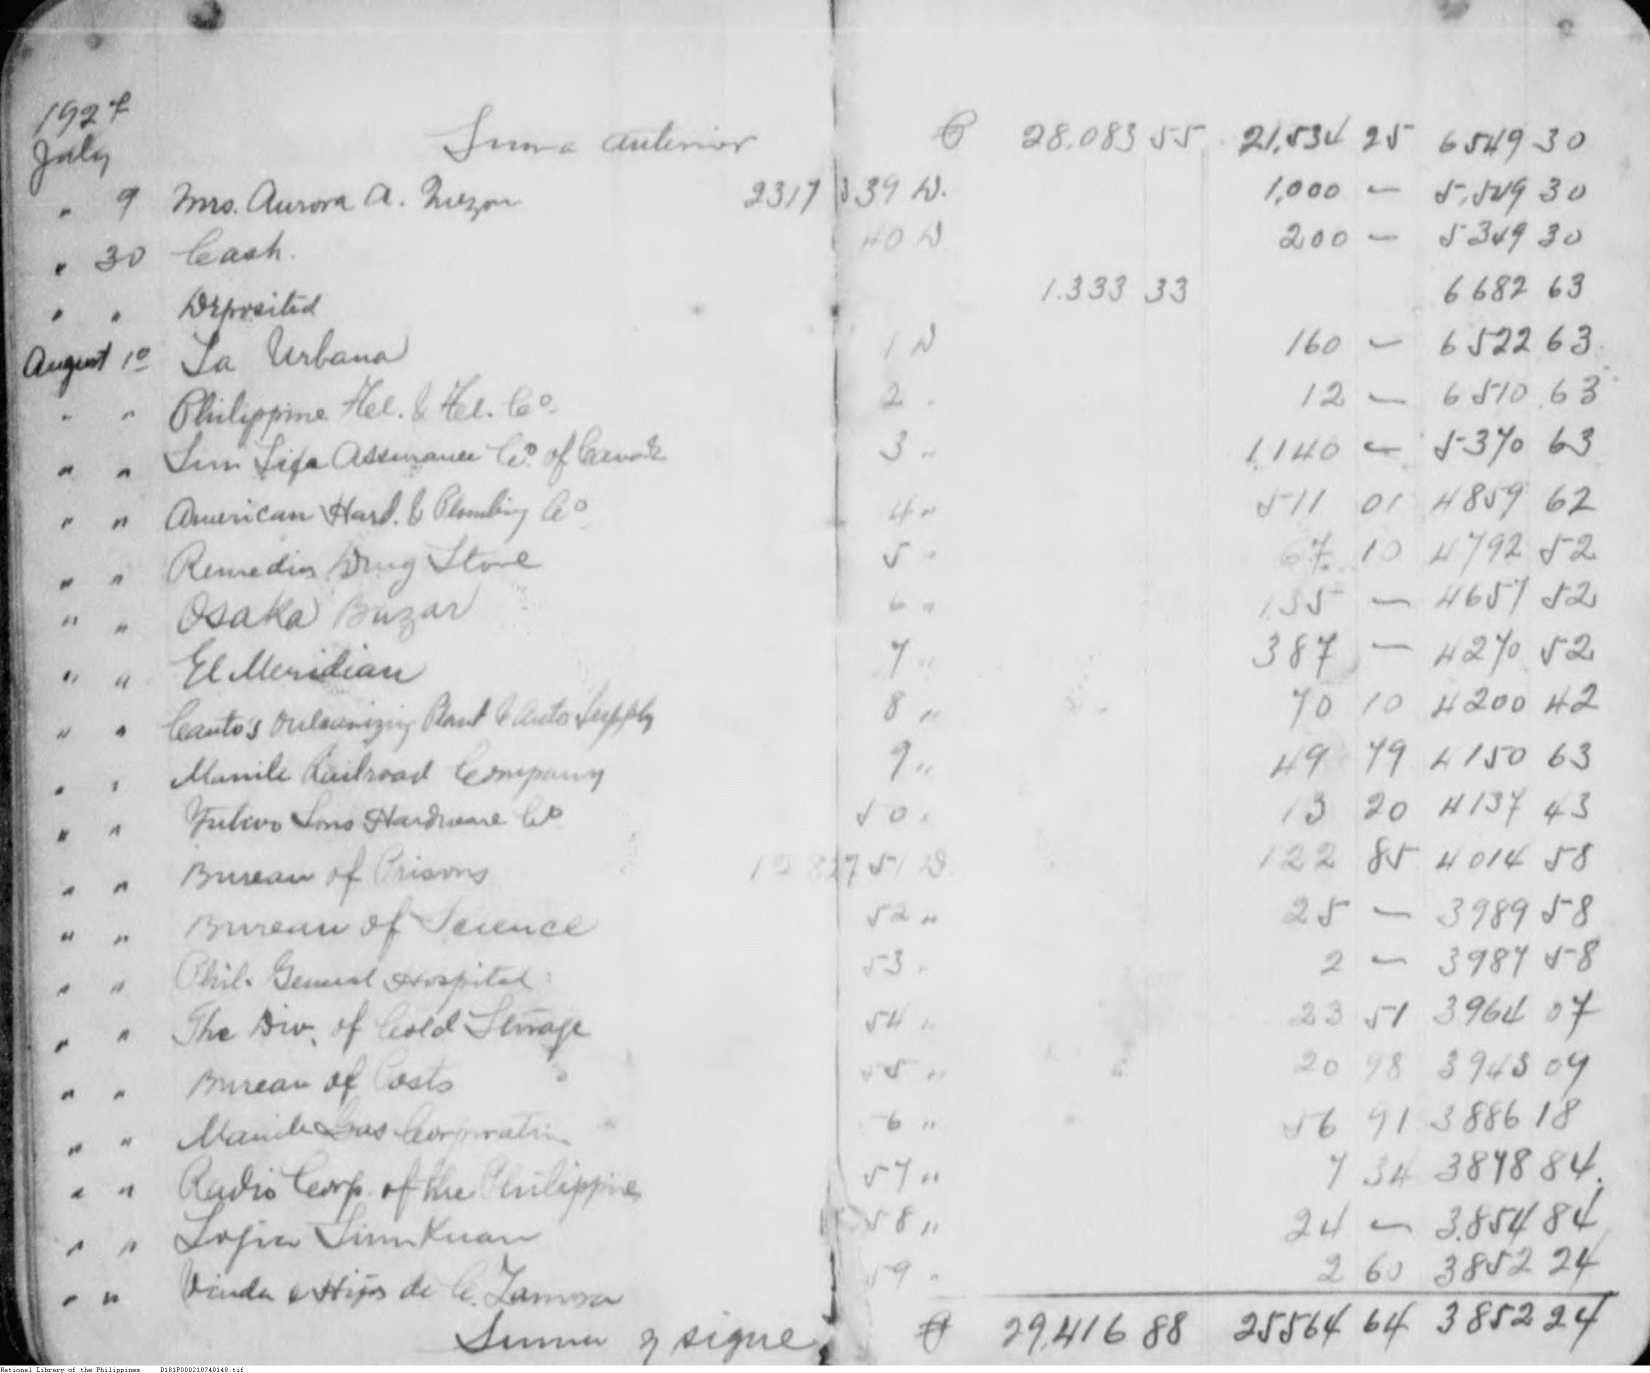 1927
July Suma anterior ₱ 28.083 55 21,534 25 6549 30
" 9 Mrs. Aurora A. Quezon 2317 339 D. 1,000 — 5,549 30
" 30 Cash. 40 D 200 — 5349 30
" " Deposited 1.333 33 6682 63
August 1º La Urbana 1 D 160 — 6522 63
" " Philippine Tel. & Tel. Cº. 2 " 12 — 6510 63
" " Sun Life Assurance Cº. of Canada 3 " 1,140 — 5370 63
" " American Hard. & Plumbing Cº 4 " 511 01 4859 62
" " Remedios Drug Store 5 " 67 10 4792 52
" " Osaka Bazar 6 " 135 — 4657 52
" " El Meridian 7 " 387 — 4270 52
" " Canto's Vulcanizing Plant & Auto Supply 8 " 70 10 4200 42
" " Manila Railroad Company 9 " 49 79 4150 63
" " Yutivo Sons Hardware Cº 50 " 13 20 4137 43
" " Bureau of Prisons 51 D 122 85 4014 58
" " Bureau of Science 52 " 25 — 3989 58
" " Phil. General Hospital 53 " 2 — 3987 58
" " The Div. of Cold Storage 54 " 23 51 3964 07
" " Bureau of Posts 55 " 20 98 3943 09
" " Manila Gas Corporation 6 " 56 91 3886 18
" " Radio Corp. of the Philippines 57 " 7 34 3878 84.
" " 58 " 24 — 3.854 84
" " Viuda e Hijos de C. Zamora 59 " 2 60 3852 24
Suma y sigue ₱ 29,416 88 25564 64 3852 24
National Library of the Philippines D181P000210740148.tif